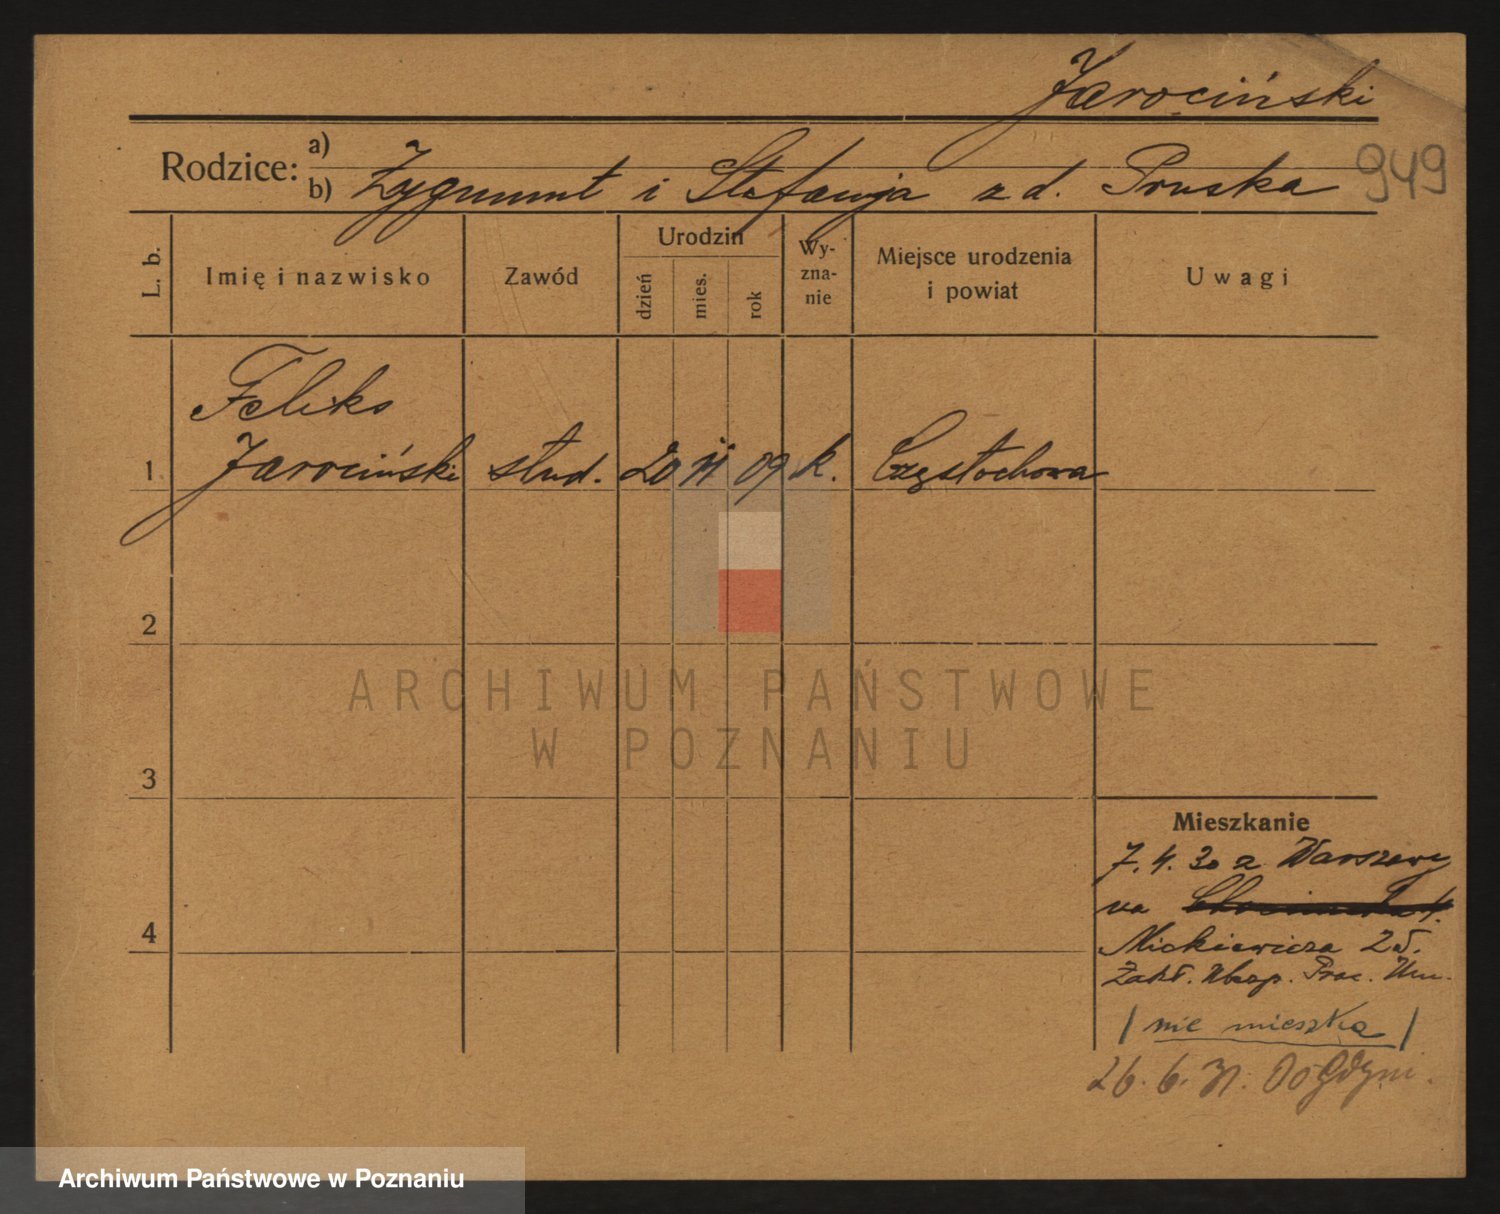 Jarociński
Rodzice: a)
b) Zygmunt i Stefanja z d. Pruska 949
L. b.
Imię i nazwisko
Zawód
Urodzin
dzień
mies.
rok
Wy-
zna-
nie
Miejsce urodzenia
i powiat
Uwagi
Feliks
1 Jarociński stud. 20 09 k. Częstochowa
2
ARCHIWUM PAŃSTWOWE
W POZNANIU
3
Mieszkanie
7.4.30 z Warszawy
na
4
Mickiewicza 25.
Zakł. Ubezp. Prac. Um.
/ nie mieszka /
26.6.31. Do Gdyni.
Archiwum Państwowe w Poznaniu